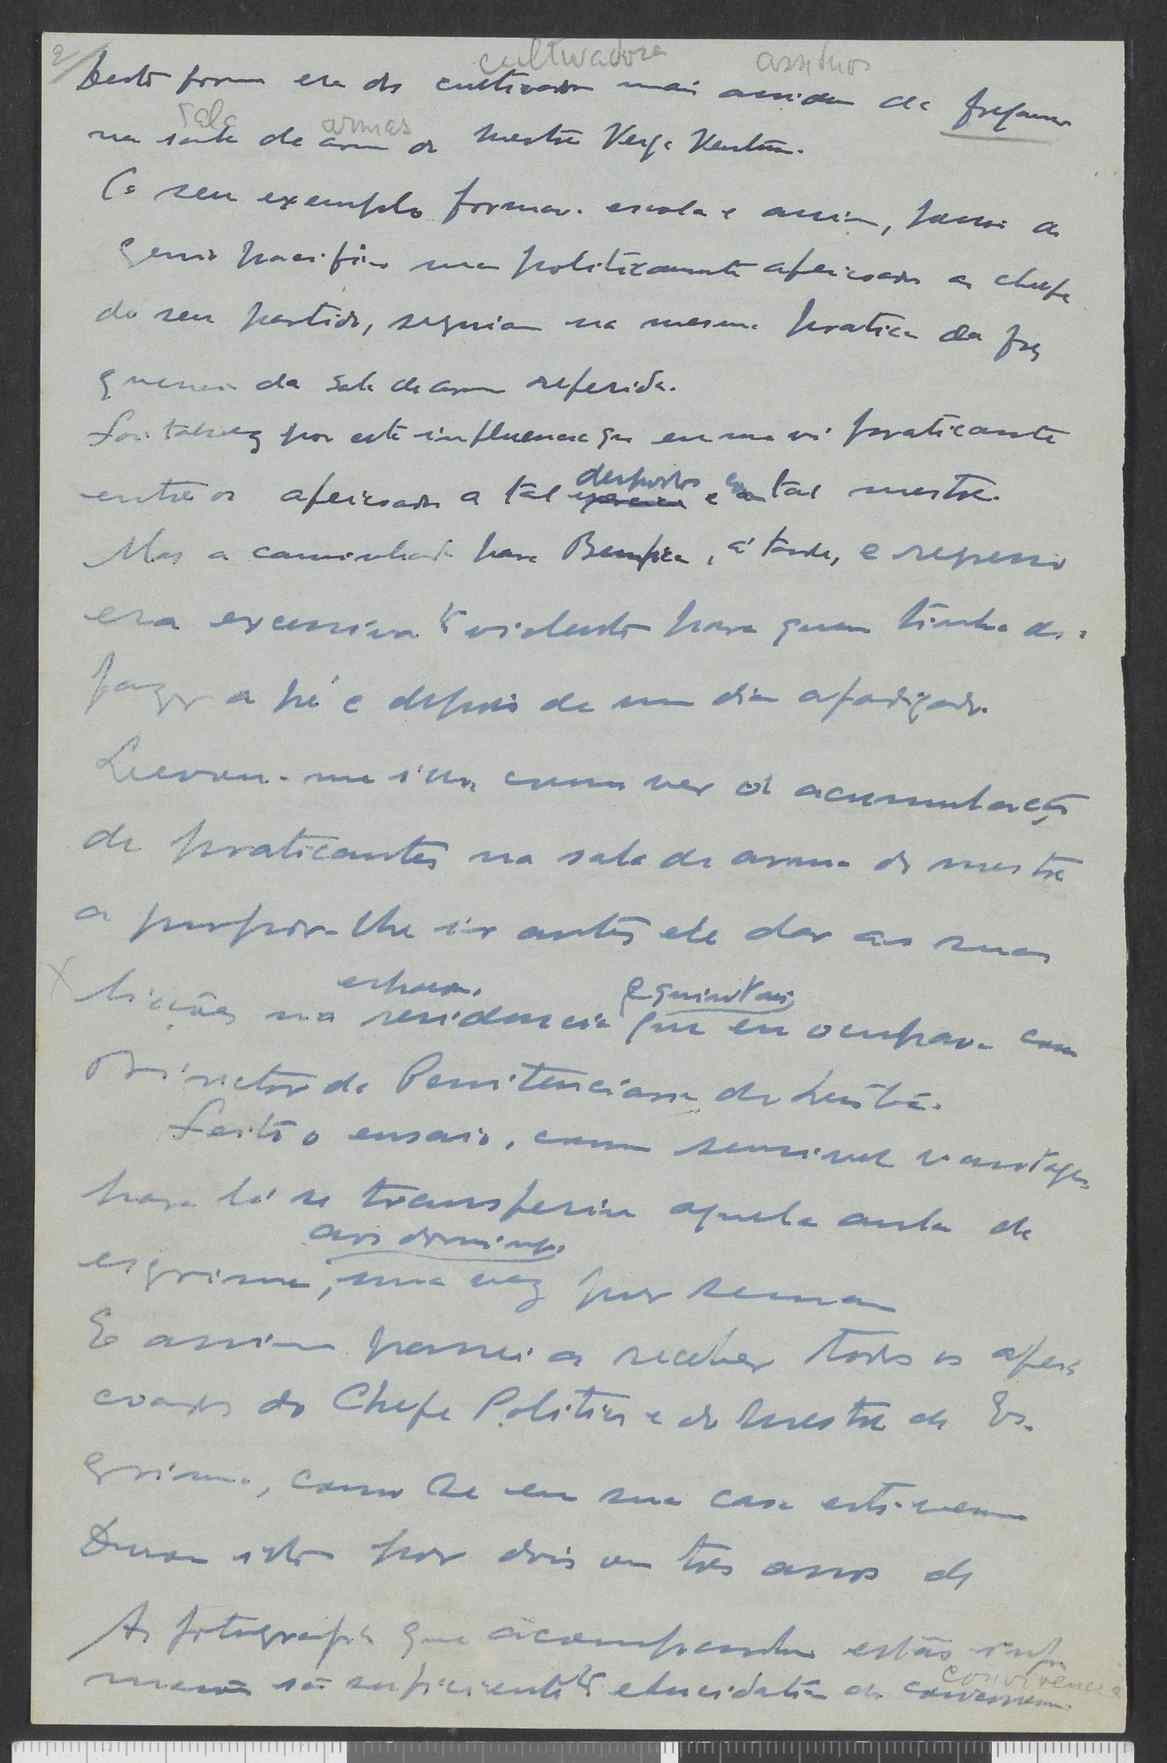 2/
cultivadora assiduos
Desta forma era dos cultivadores mais assiduos de
sala armas
na sala de armas do Mestre Veiga Ventura.
Co seu exemplo formou escola e assim,
genio pacifico mas politicamente afeiçoados ao chefe
do seu partido, seguiam na mesma pratica da fre
quencia da sala de armas referida.
Foi talvez por esta influencia que eu me vi praticante
desportos
entre os afeiçoados a tal e a tal mestre.
Mas a caminhada para Bemfica, á tarde, e regresso
era excessiva e violenta para quem tinha de a
fazer a pé e depois de um dia afadigado.
Levou-me isso, como ver a acumulação
de praticantes na sala de armas do mestre
a propor-lhe ir antes ele dar as suas
lições na residencia que eu ocupava como
Director da Penitenciaria de Lisboa.
Feito o ensaio, com sensivel vantagem
para lá se transferiu aquela aula de
aos domingos
esgrima, uma vez por semana
E assim passei a receber todos os afei
çoados do Chefe Politico e do Mestre de Es-
grima, como se em sua casa estivessem
Durou isto por dois ou tres anos de
As fotografias que acompanham estas infor
convivencia
mações são suficientes elucidativas da